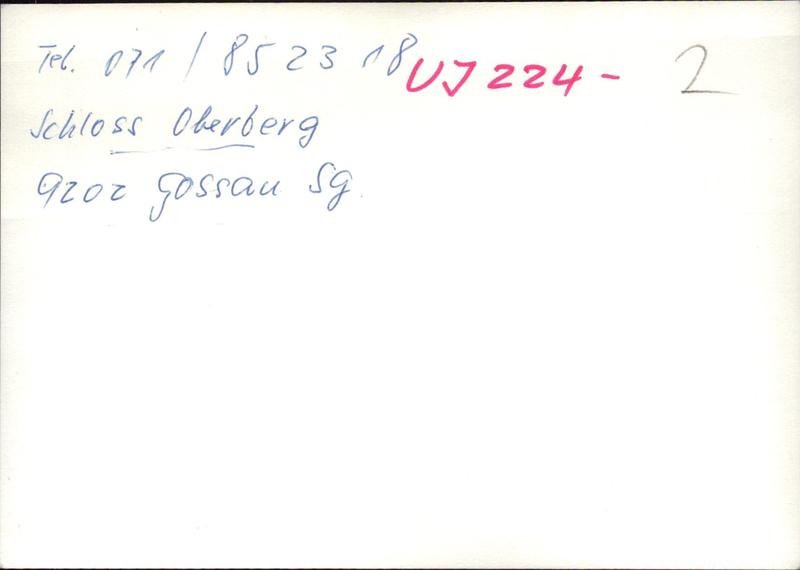 Tel. 071 / 85 23 18 UJ 224 - 2
Schloss Oberberg
9202 Gossau Sg